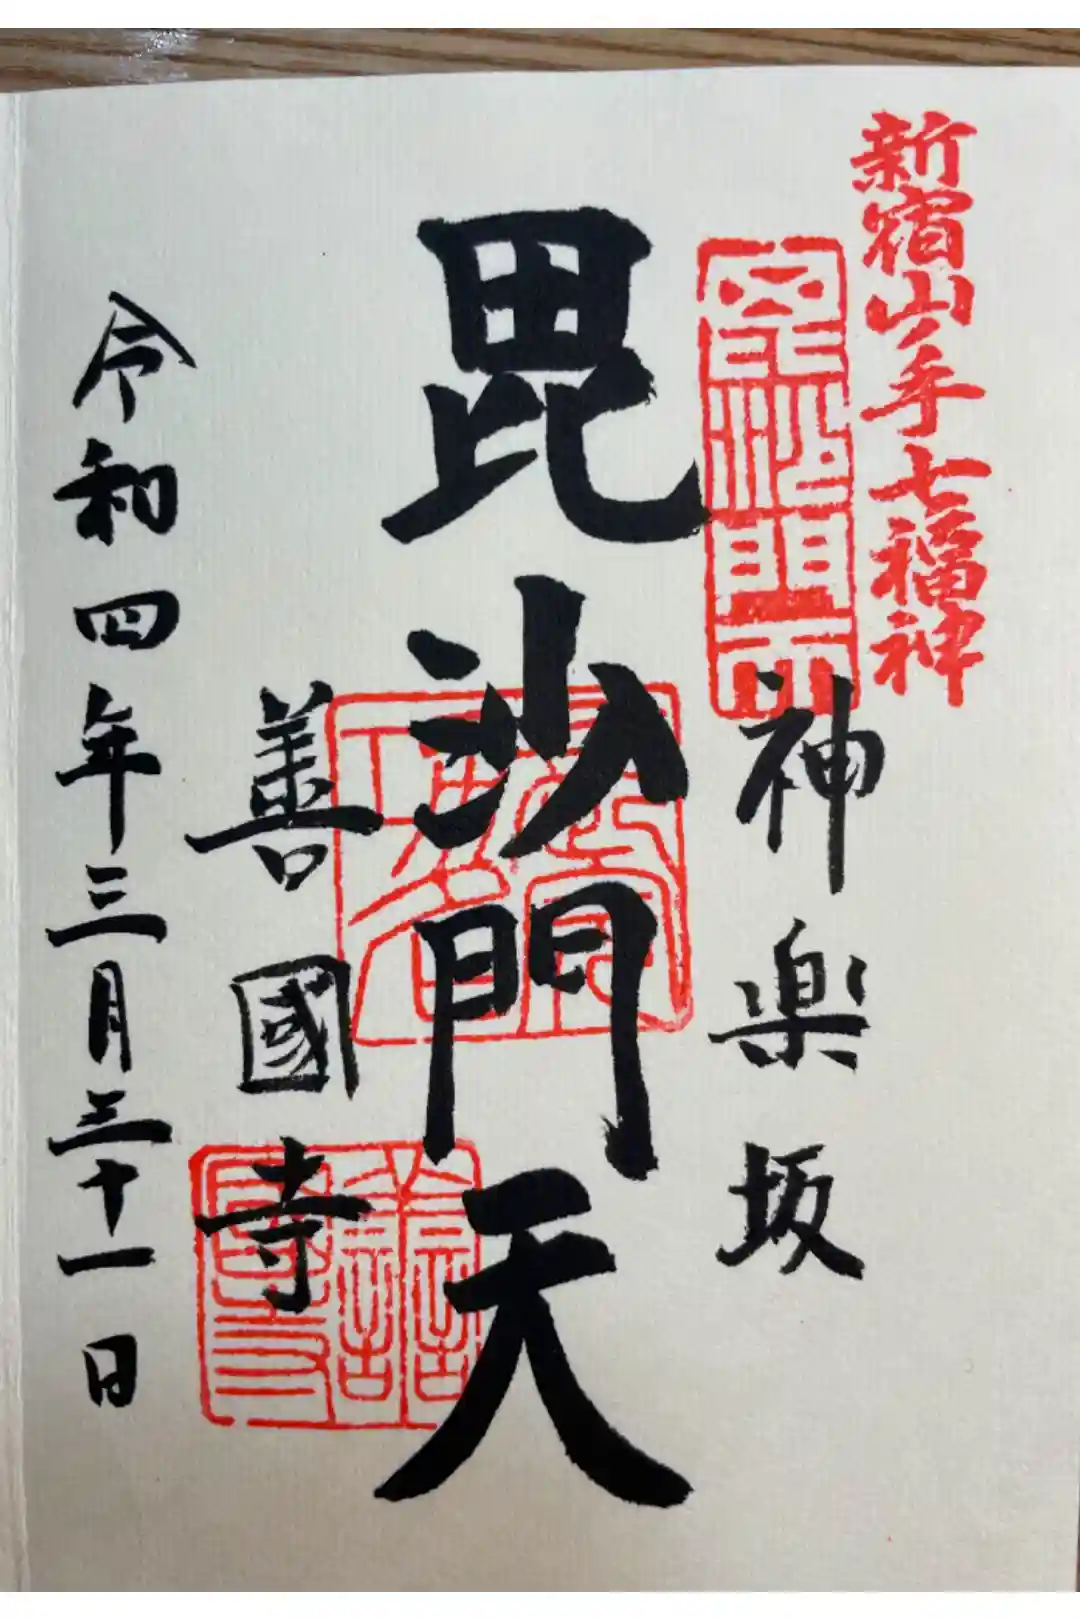 新宿山ノ手七福神
神楽坂
毘沙門天
善國寺
令和四年三月三十一日